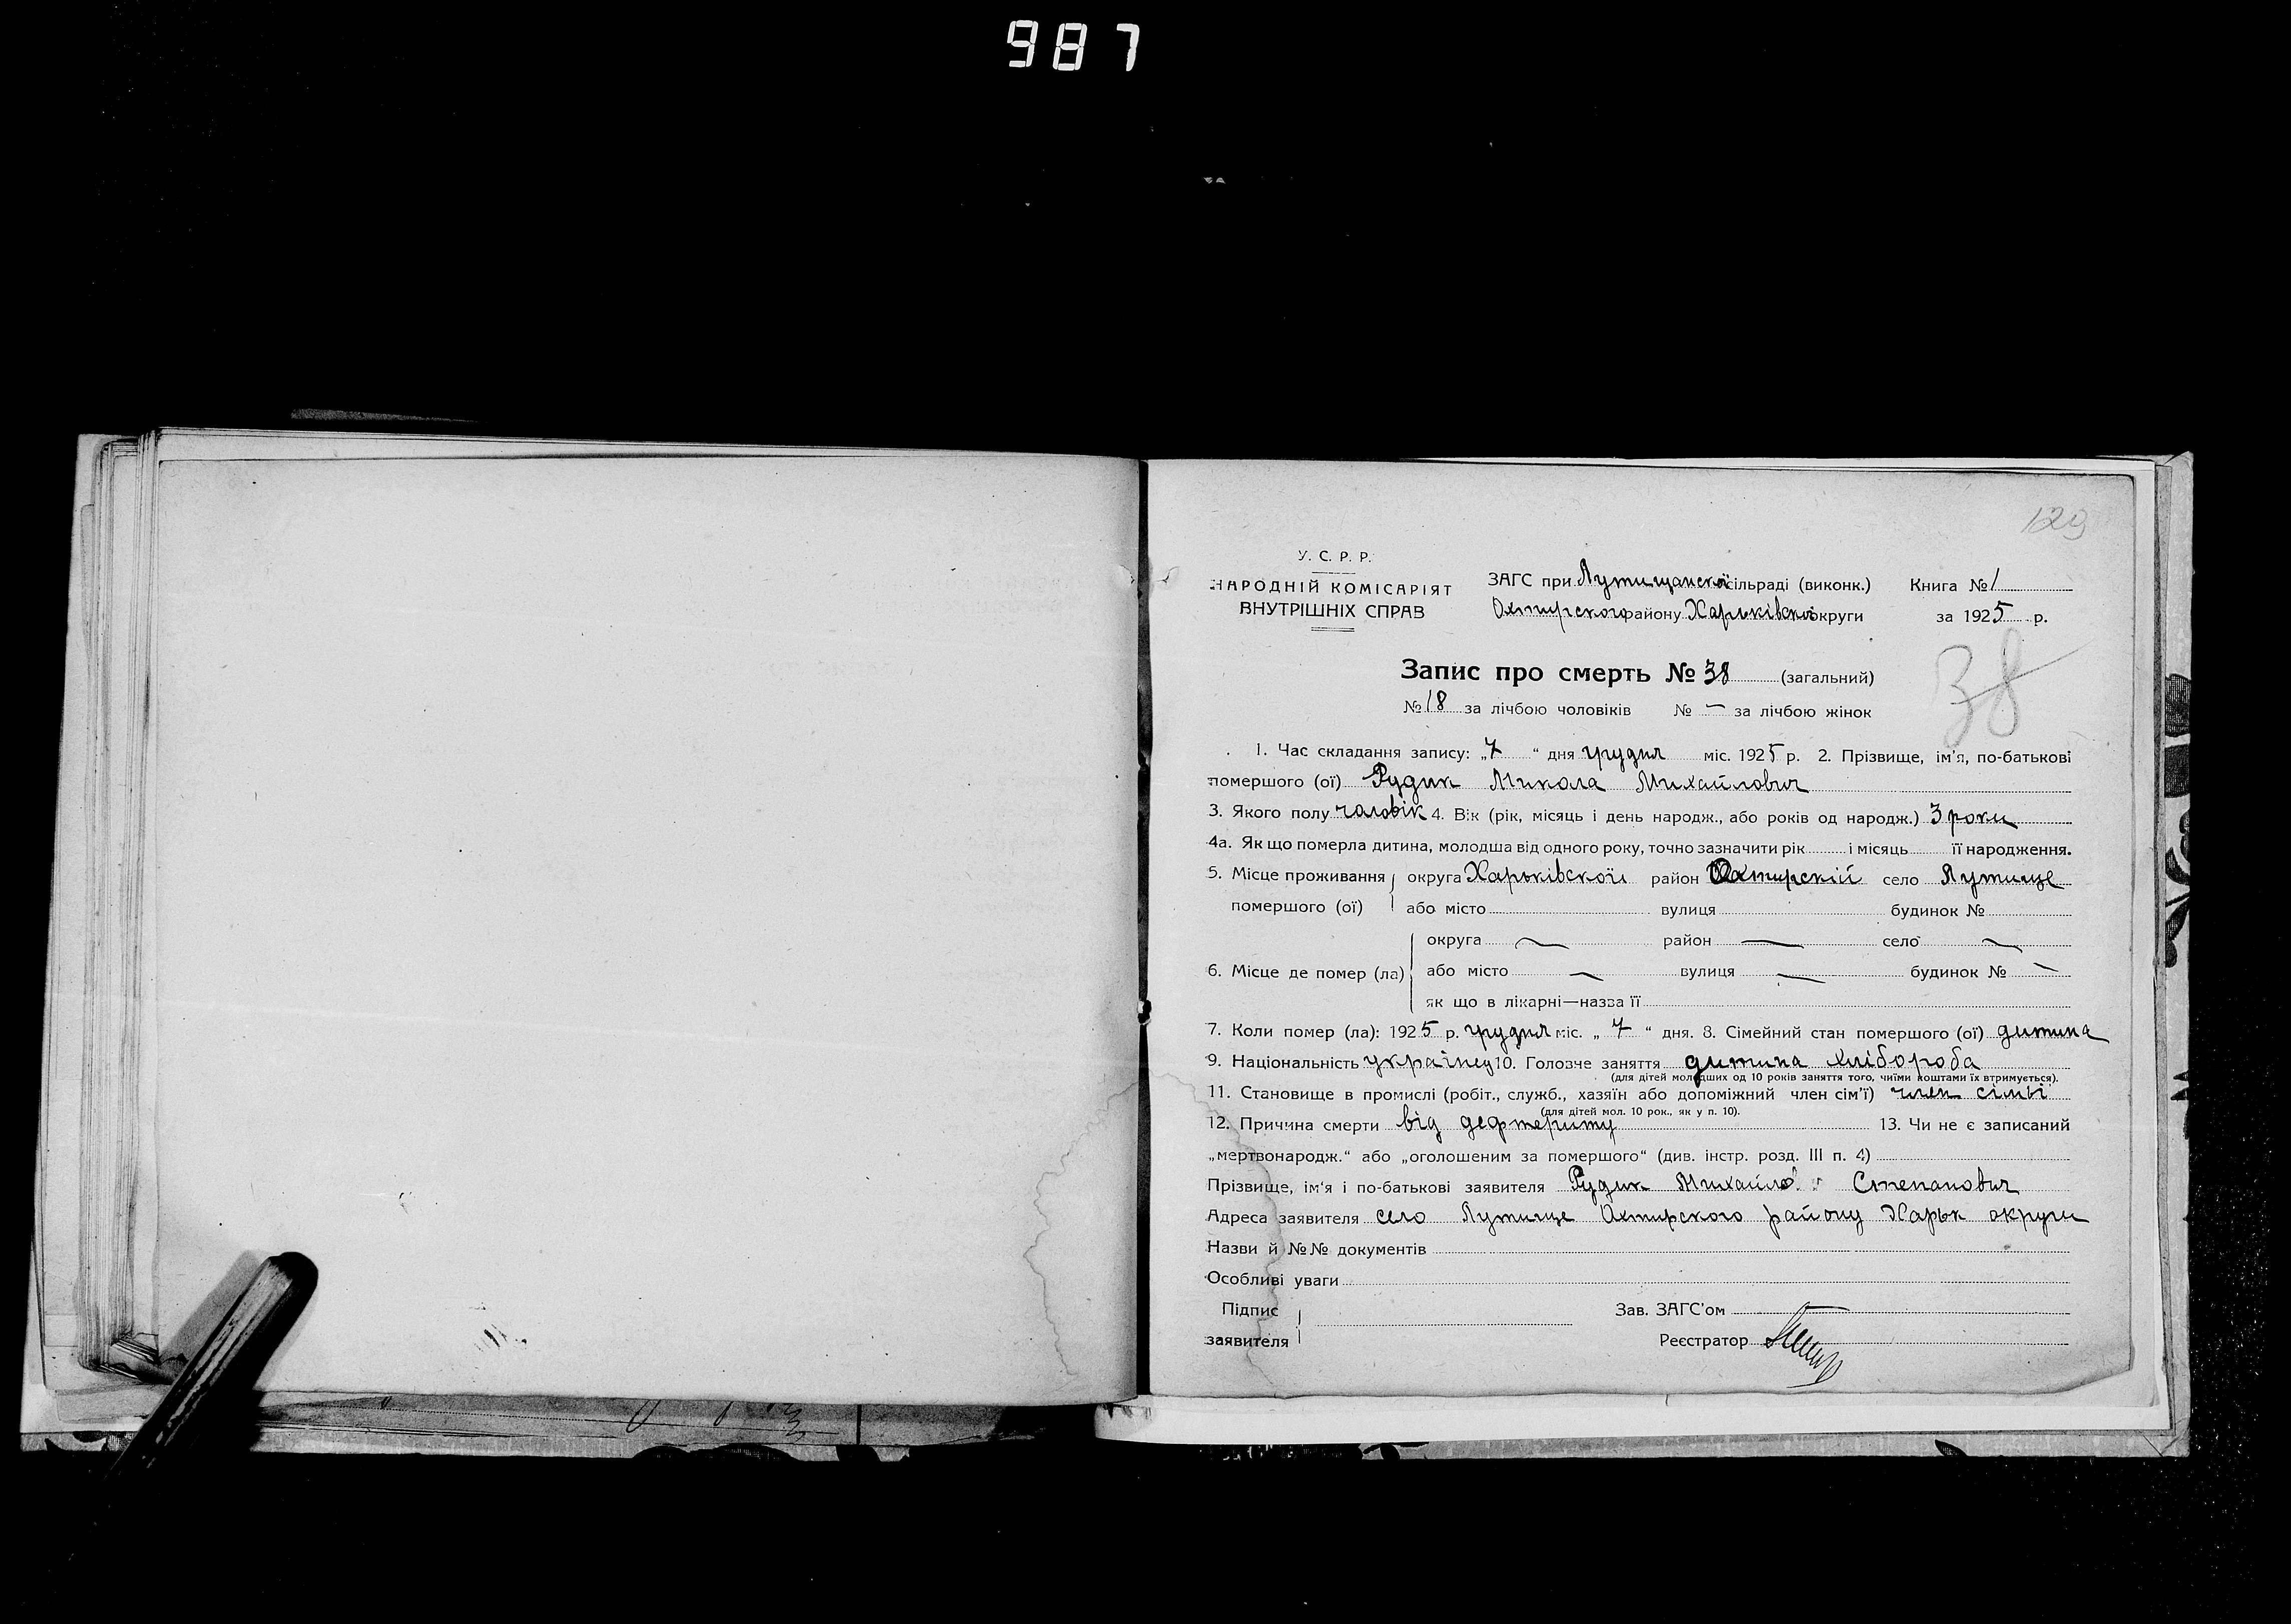 987
129
У. С. Р. Р.
НАРОДНІЙ КОМІСАРІЯТ
ВНУТРІШНІХ СПРАВ
ЗАГС при Лутищанскої сільраді (виконк.) Книга № 1
Охтирского району Харьківскої округи за 1925 р.
Запис про смерть № 38 (загальний)
38
№ 18 за лічбою чоловіків № — за лічбою жінок
1. Час складання запису: „7“ дня грудня міс. 1925 р. 2. Прізвище, ім'я, по-батькові
помершого (ої) Рудик Микола Михайлович
3. Якого полу чоловік 4. Вік (рік, місяць і день народж., або років од народж.) 3 роки
4а. Як що померла дитина, молодша від одного року, точно зазначити рік і місяць її народження.
5. Місце проживання округа Харьківскої район Охтирскій село Лутище
помершого (ої) або місто вулиця будинок №
округа — район — село —
6. Місце де помер (ла) або місто — вулиця — будинок № —
як що в лікарні—назва її
7. Коли помер (ла): 1925 р. грудня міс. „7“ дня. 8. Сімейний стан помершого (ої) дитина
9. Національність українец 10. Головне заняття дитина хлібороба
(для дітей молодших од 10 років заняття того, чиїми коштами їх втримується).
11. Становище в промислі (робіт., служб., хазяїн або допоміжний член сім'ї) член сімьї
(для дітей мол. 10 рок., як у п. 10).
12. Причина смерти від дефтериту 13. Чи не є записаний
„мертвонародж.“ або „оголошеним за помершого“ (див. інстр. розд. III п. 4)
Прізвище, ім'я і по-батькові заявителя Рудик Михайло Степанович
Адреса заявителя село Лутище Охтирского району Харьк округи
Назви й №№ документів
Особливі уваги
Підпис
заявителя
Зав. ЗАГС'ом
Реєстратор